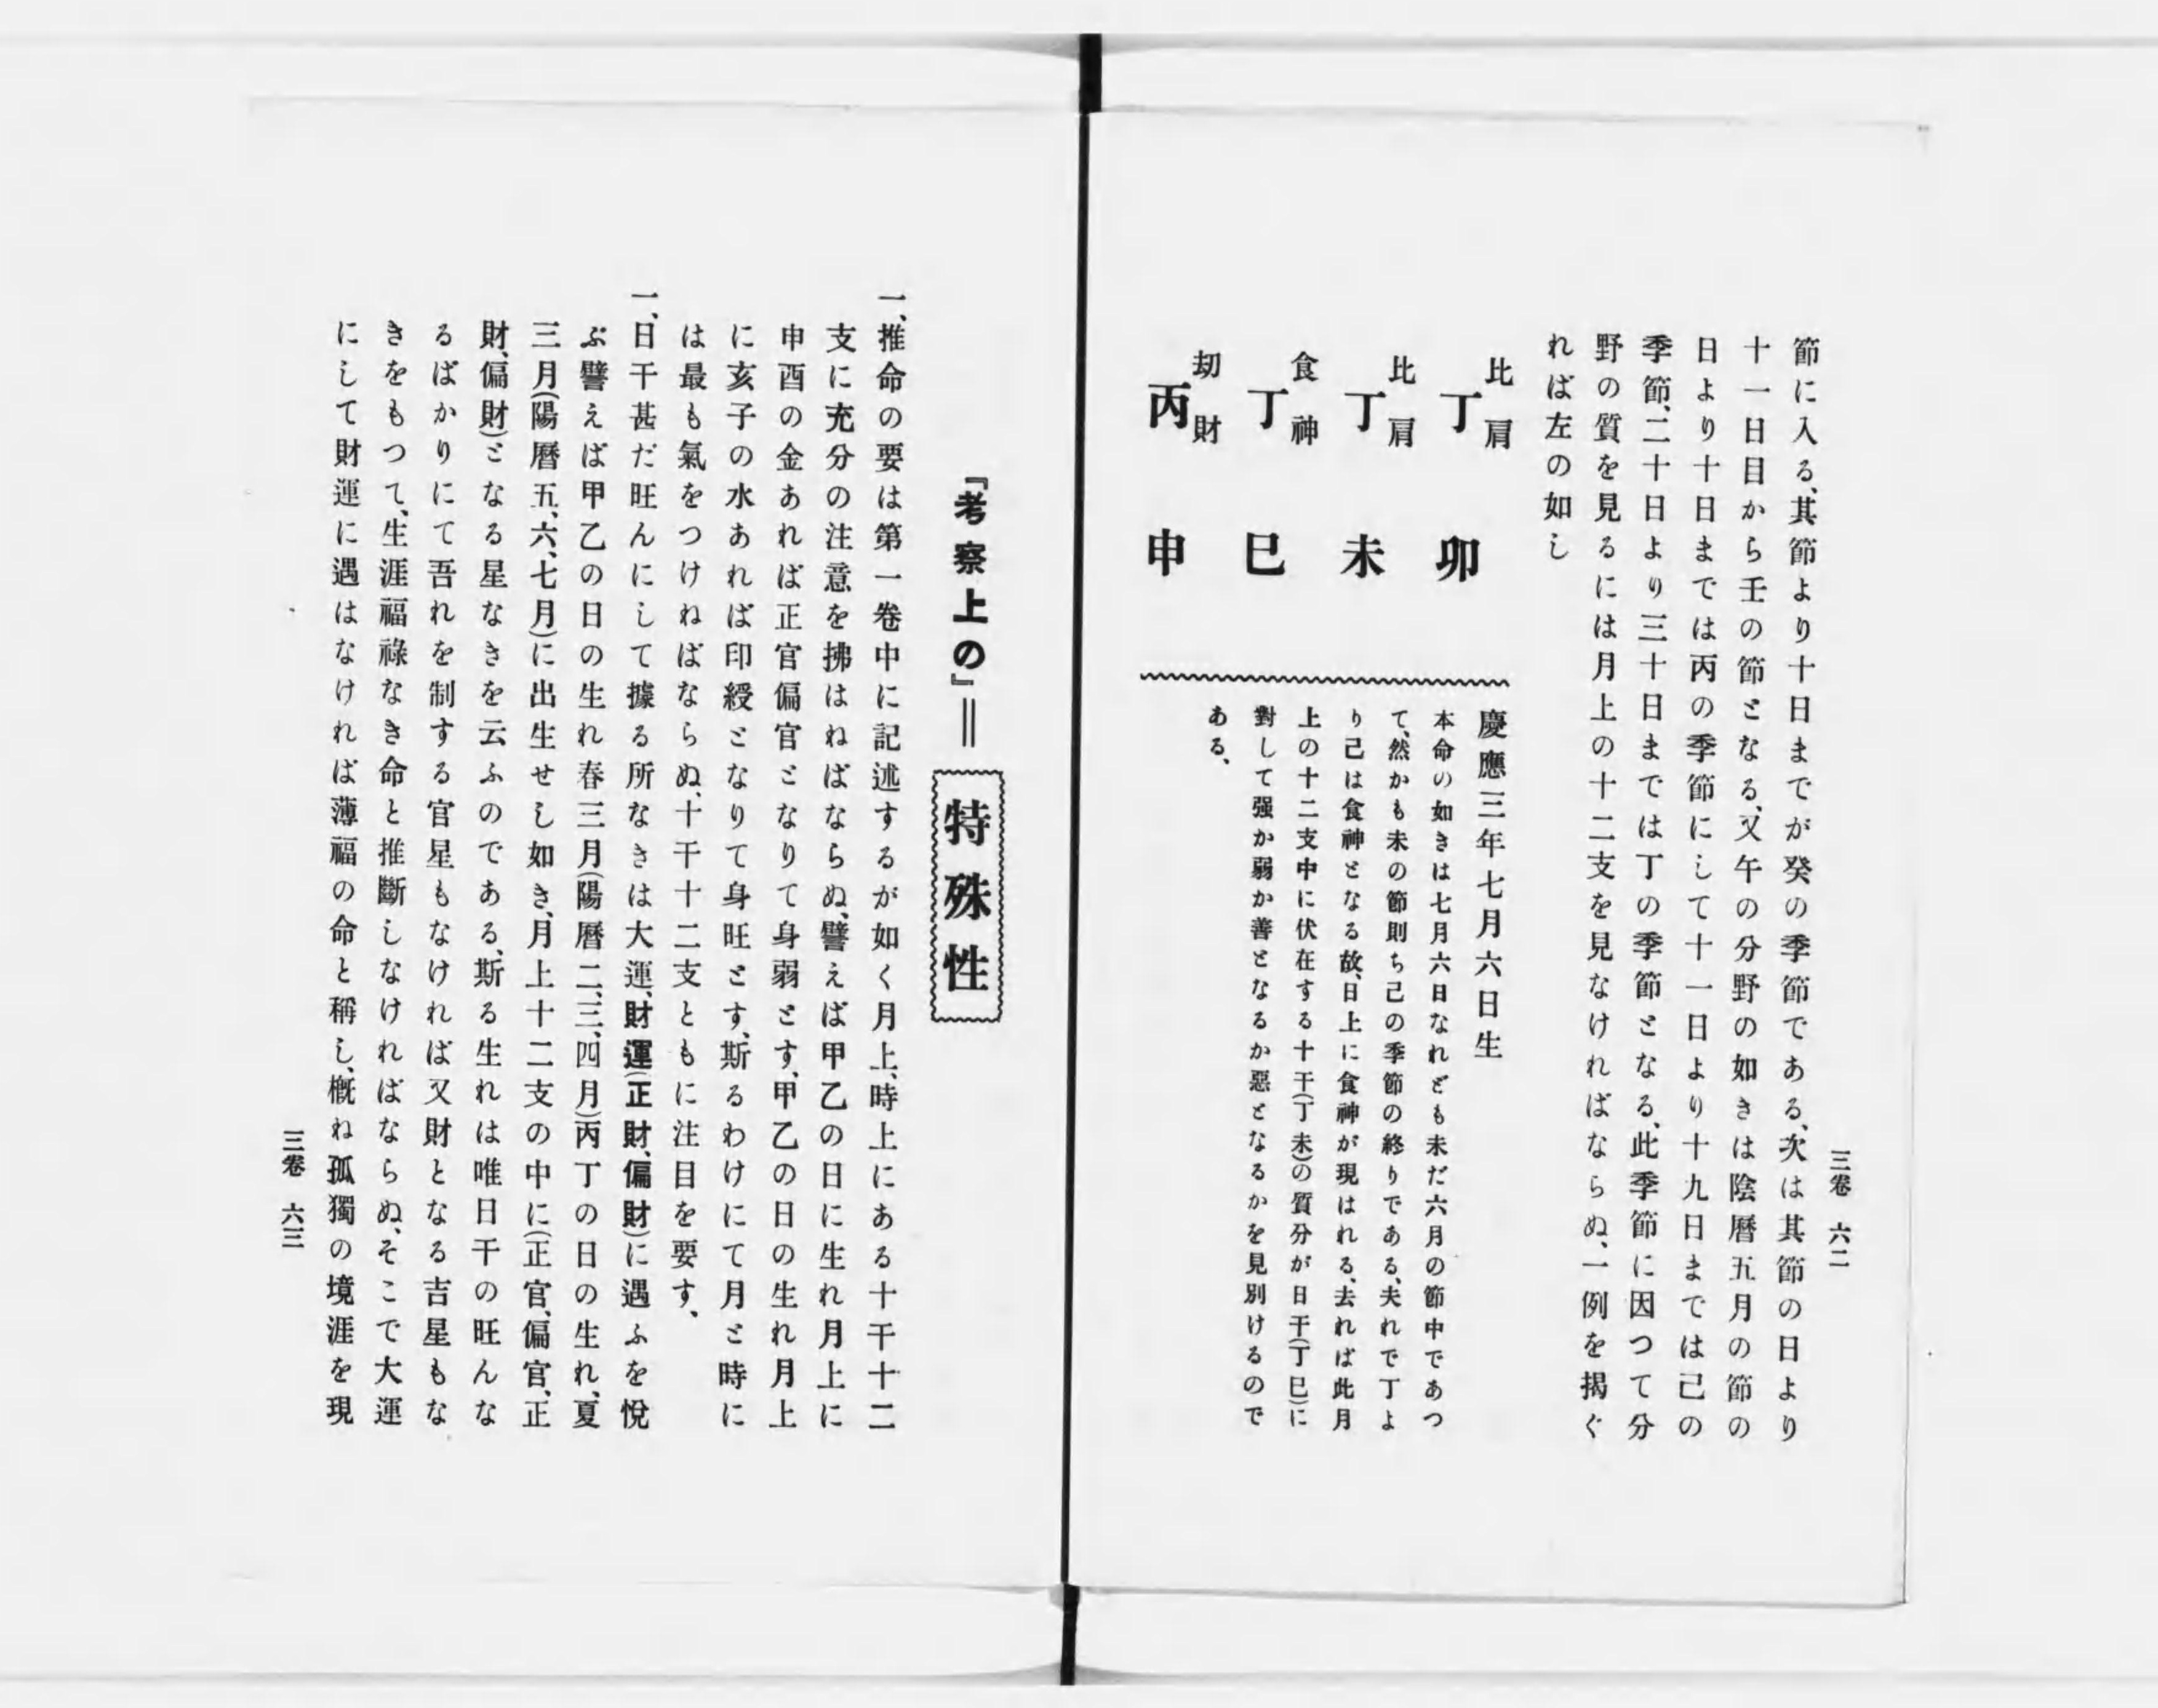 三卷 六二
節に入る、其節より十日までが癸の季節である、次は其節の日より
十一日目から壬の節となる、又午の分野の如きは陰曆五月の節の
日より十日までは丙の季節にして十一日より十九日までは己の
季節、二十日より三十日までは丁の季節となる、此季節に因つて分
野の質を見るには月上の十二支を見なければならぬ、一例を揭ぐ
れば左の如し
比肩
丁 卯
比肩
丁 未
食神
丁 巳
刧財
丙 申
慶應三年七月六日生
本命の如きは七月六日なれども未だ六月の節中であつ
て、然かも未の節則ち己の季節の終りである、夫れで丁よ
り己は食神となる故、日上に食神が現はれる、去れば此月
上の十二支中に伏在する十干(丁未)の質分が日干(丁巳)に
對して强か弱か善となるか惡となるかを見別けるので
ある、
『考察上の』＝特殊性
一、推命の要は第一卷中に記述するが如く月上、時上にある十干十二
支に充分の注意を拂はねばならぬ、譬えば甲乙の日に生れ月上に
申酉の金あれば正官偏官となりて身弱とす、甲乙の日の生れ月上
に亥子の水あれば印綬となりて身旺とす、斯るわけにて月と時に
は最も氣をつけねばならぬ、十干十二支ともに注目を要す、
一、日干甚だ旺んにして據る所なきは大運、財運(正財、偏財)に遇ふを悅
ぶ譬えば甲乙の日の生れ春三月(陽曆二、三、四月)丙丁の日の生れ、夏
三月(陽曆五、六、七月)に出生せし如き、月上十二支の中に(正官、偏官、正
財、偏財)となる星なきを云ふのである、斯る生れは唯日干の旺んな
るばかりにて吾れを制する官星もなければ又財となる吉星もな
きをもつて、生涯福祿なき命と推斷しなければならぬ、そこで大運
にして財運に遇はなければ薄福の命と稱し、槪ね孤獨の境涯を現
三卷 六三